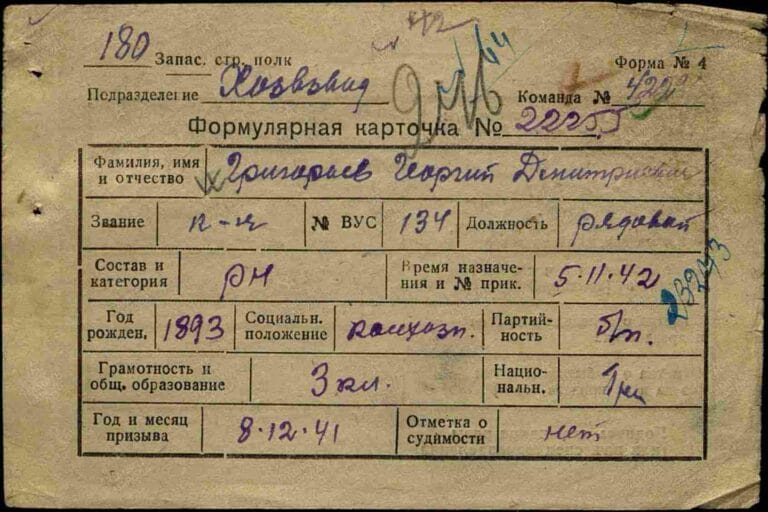 180 Запас. стр. полк
Форма № 4
Подразделение Хозвзвод
Команда № 422
Формулярная карточка № 22255
Фамилия, имя и отчество Григорьев Георгий
Звание к-ц № ВУС 134 Должность рядовой
Состав и категория РН Время назначения и № прик. 5.11.42
23243
Год рожден. 1893 Социальн. положение колхозн. Партийность б/п.
Грамотность и общ. образование 3 кл. Национальн.
Год и месяц призыва 8.12.41 Отметка о судимости нет